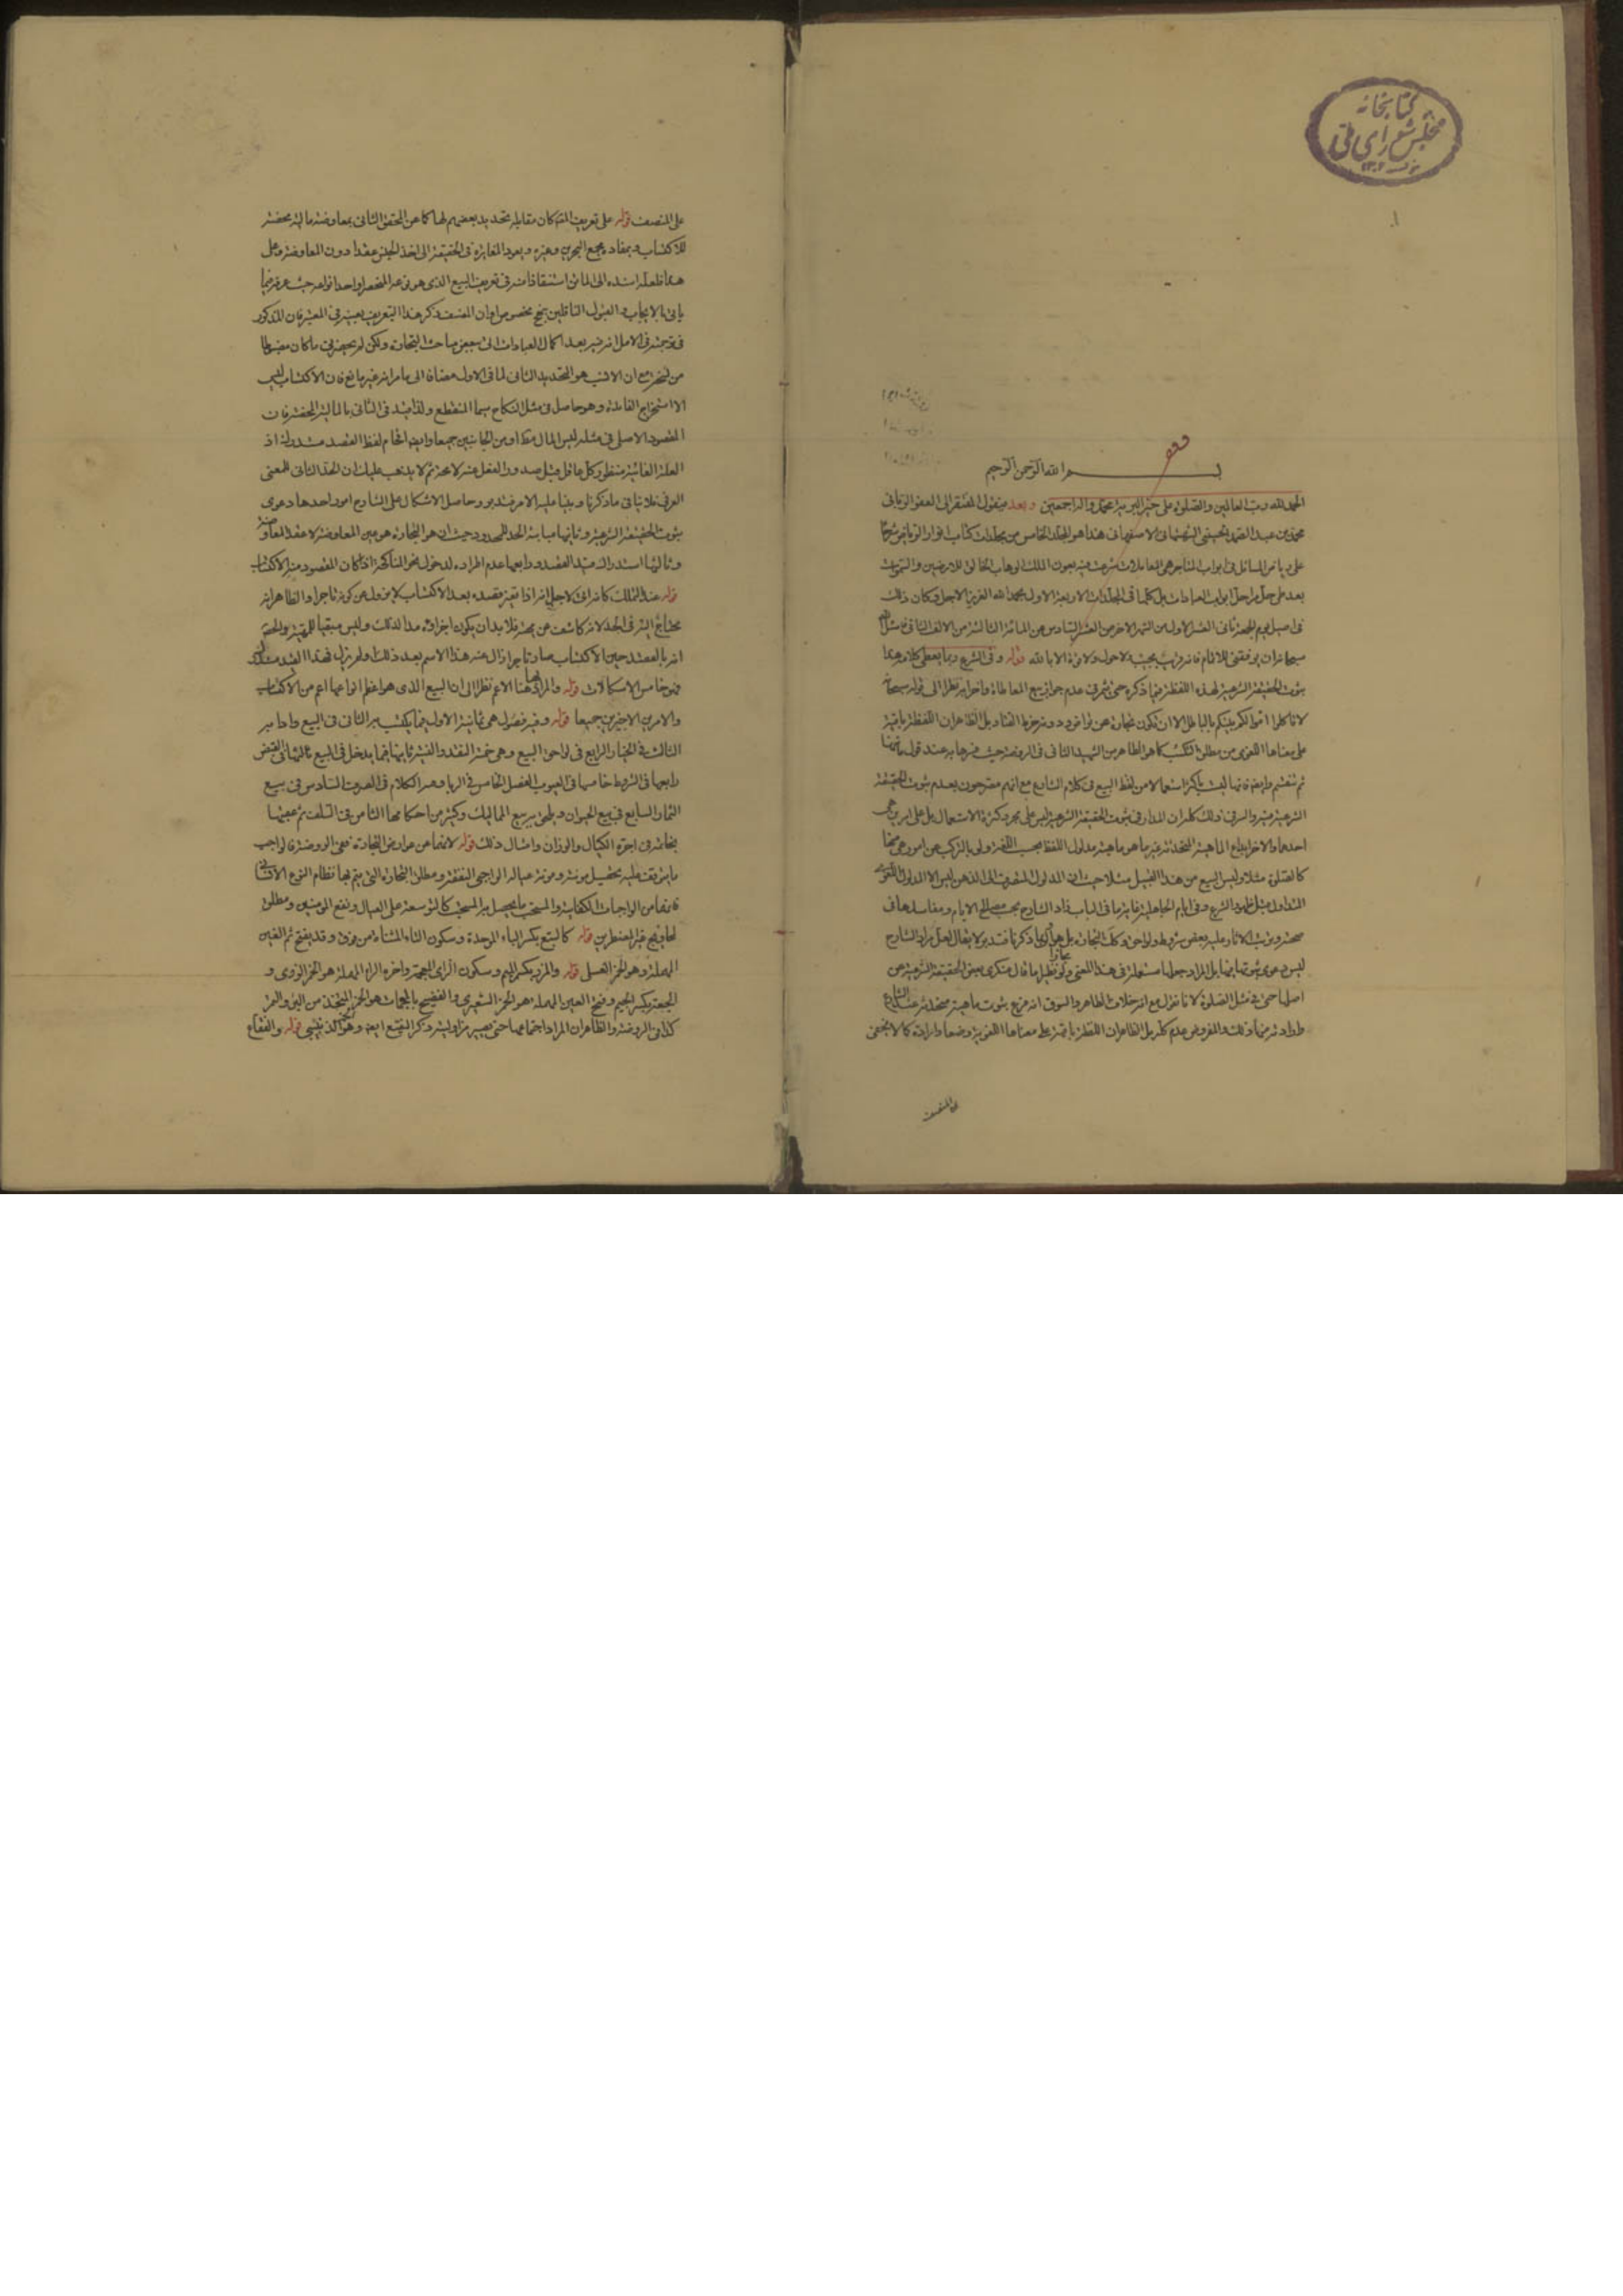 كتابخانه
مجلس شورای ملی
بسم الله الرحمن الرحيم
الحمد لله رب العالمين والصلوة على خير البرية محمد واله اجمعين وبعد فيقول المفتقر الى العفو الربانى
محمد بن عبد الصمد الحسينى الشهشهانى الاصفهانى هذا هو المجلد الخامس من مجلدات كتاب انوار الرياض شرحا
على رياض المسائل فى ابواب المتاجر هى المعاملات شرعت فيه بعون الملك الوهاب الخالق للارضين والسموات
بعد طى جل مراحل ابواب العبادات بل كلها فى المجلدات الاربعة الاول بحمد الله العزيز الاجل وكان ذلك
فى اصيل يوم الجمعة ثانى العشر الاول من الشهر الاخر من العشر السادس من المائة الثالثة من الالف الثانى
سبحانه ان يوفقنى للاتمام فانه قريب مجيب ولا حول ولا قوة الا بالله قوله وفى الشرع ربما يعطى كلامه هذا
ثبوت الحقيقة الشرعية لهذه اللفظة فيما ذكره حتى شرف عدم جواز بيع المعاطاة واخراجه نظرا الى قوله سبحانه
لا تاكلوا اموالكم بينكم بالباطل الا ان تكون تجارة عن تراض بل الظاهر ان اللفظة باقية
على معناها اللغوى من مطلق التكسب كما هو الظاهر من الشهيد الثانى فى الروضة حيث فسرها به عند قول
ثم تنقسم وايضا فانها ليست باكثر استعمالا من لفظ البيع فى كلام الشارع مع انهم مصرحون بعدم ثبوت الحقيقة
الشرعية فيه والسر فى ذلك كله ان المدار فى ثبوت الحقيقة الشرعية ليس على مجرد كثرة الاستعمال بل على امرين
احدهما والاخر ابداع الماهية المتحدثة غير ما هو ماهية مدلول اللفظ بحسب اللغة ولو بالتركب من امور هى
كالصلوة مثلا وليس البيع من هذا القبيل مثلا حيث ان المدلول المنصرف الى الذهن ليس الا المدلول اللغوى
المتداول مثل ظهور الشرع وفى ايام الجاهلية غاية ما فى الباب زاد الشارع بحسب مصالح الايام ومفاسدها فى
صحته وترتب الاثار عليه بعض شروط ولواحق وكك التجارة بل هى اولى بما ذكرنا فتدبر لا يقال لعل مراد الشارح
ليس دعوى ثبوتها فيها بل المراد جعلها مستعملة فى هذا المعنى ولو مجازا نظير ما قال منكرى بعض الحقيقة الشرعية من
اصلها حتى فى مثل الصلوة لانا نقول مع انه خلاف الظاهر والسوق انه فرع ثبوت ماهية مخترعة عند الشارع
وارادته منها ذلك والمفروض عدم كليهما بل الظاهر ان اللفظة باقية على معناها اللغوية وضعا وارادة كما لا يخفى
على المنصف
على المنصف قوله على تعريف المتن كان مقابله تحديد بعضهم لها كما عن المحقق الثانى بمعاوضة مالية محضة
للاكتساب وبمفاده مجمع البحرين وغيره ويعود المغايرة فى الحقيقة الى اخذ الجنس عقدا دون المعاوضة وعلى
هذا فلعله اسنده الى الماتن استنقاذا منه فى تعريف البيع الذى هو نوعه المنحصر او احد انواعه حيث عرفه فيما
ياتى بالايجاب والقبول الناقلين بنهج مخصوص او ان المصنف ذكر هذا التعريف بعينه فى المعتبر فان المذكور
فى ترجمته فى الامل انه خبر بعد اكمال العبادات الى بعض مباحث التجارة ولكن لم يحضرنى ما كان مضبوطا
من نسخه مع ان الانسب هو التحديد الثانى لما فى الاول مضافا الى ما مر انه غير مانع فان الاكتساب ليس
الا استخراج الفائدة وهو حاصل فى مثل النكاح سيما المنقطع ولذا قيد فى الثانى بالمالية المحضة فان
المقصود الاصلى فى مثله ليس المال فقط او من الجانبين جميعا وايضا اقحام لفظ القصد مستدرك اذ
العلة الغائية منظور كل عاقل قبل صدور الفعل عنه لا محة ثم لا يذهب عليك ان الحد الثانى للمعنى
العرفى فلا ينافى ما ذكرنا وبنينا عليه الامر فتدبر وحاصل الاشكال على الشارح امور احدها دعوى
ثبوت الحقيقة الشرعية وثانيها مباينة الحد للمحدود حيث ان هو التجارة هو عين المعاوضة لا عقد المعاوضة
وثالثها استدراك قيد القصد ورابعها عدم اطراده لدخول نحو المناكحة اذا كان المقصود منه الاكتساب
قوله عند التملك كانه اتى لاجل انه اذا تغير قصده بعد الاكتساب لا يزول عن كونه تاجرا والظاهر انه
يحتاج اليه فى الحد لانه كاشف عن فلا بد ان يكون اخراجه مدا لذلك وليس مبقيا للمهية والحقيقة
انه بالقصد حين الاكتساب صار تاجرا زال عنه هذا الاسم بعد ذلك او لم يزل فهذا القيد مستدرك
فهو خامس الاشكالات قوله والمراد بها هنا الاعم نظرا الى ان البيع الذى هو اعظم انواعها اعم من الاكتساب
والامرين الاخيرين جميعا قوله وفيه فصول هى ثمانية الاول فيما يكتسب به الثانى فى البيع وادابه
الثالث فى الخيار الرابع فى لواحق البيع وهى خمسة النقد والنسية ثانيها فيما يدخل فى المبيع ثالثها فى القبض
رابعها فى الشروط خامسها فى العيوب الفصل الخامس فى الربا وهو الكلام فى الصرف السادس فى بيع
الثمار السابع فى بيع الحيوان ويلحق به بيع المماليك وكثير من احكامها الثامن فى السلف ثم
بخاتمة فى اجرة الكيال والوزان وامثال ذلك قوله لانهما من عوارض التجارة ففى الروضة فالواجب
ما يتوقف عليه تحصيل مؤنته ومؤنة عياله الواجبى النفقة ومطلق التجارة التى يتم بها نظام النوع الانسانى
فانها من الواجبات الكفاية والمستحب ما يحصل به المستحب كالتوسعة على العيال ونفع المؤمنين ومطلق
المحاويج غير المضطرين قوله كالبتع بكسر الباء الموحدة وسكون التاء المثناة من فوق وقد يفتح ثم العين
المهملة وهو الخمر العسلى قوله والمزر بكسر الميم وسكون الزاى المعجمة واخره الراء المهملة هو الخمر الذروى و
الجعة بكسر الجيم وفتح العين المهملة هو الخمر الشعيرى والفضيخ بالمعجمات هو الخمر المتخذ من التمر والبسر
كذا فى الروضة والظاهر ان المراد اجتماعهما حتى يصير مزا وليته ذكر النقيع ايضا وهو الخمر الزبيبى قوله والفقاع